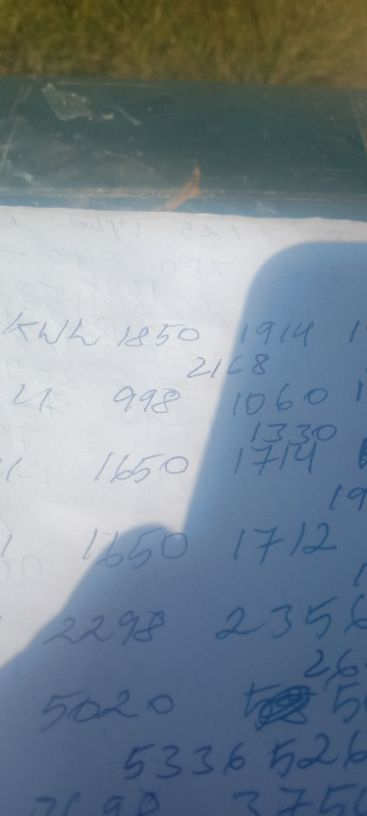 KWL 1850 1914 1
2168
998 1060 1
1330
1650 1714
19
1650 1712
2298 2356
26
5020 5
5336 526
3698 375